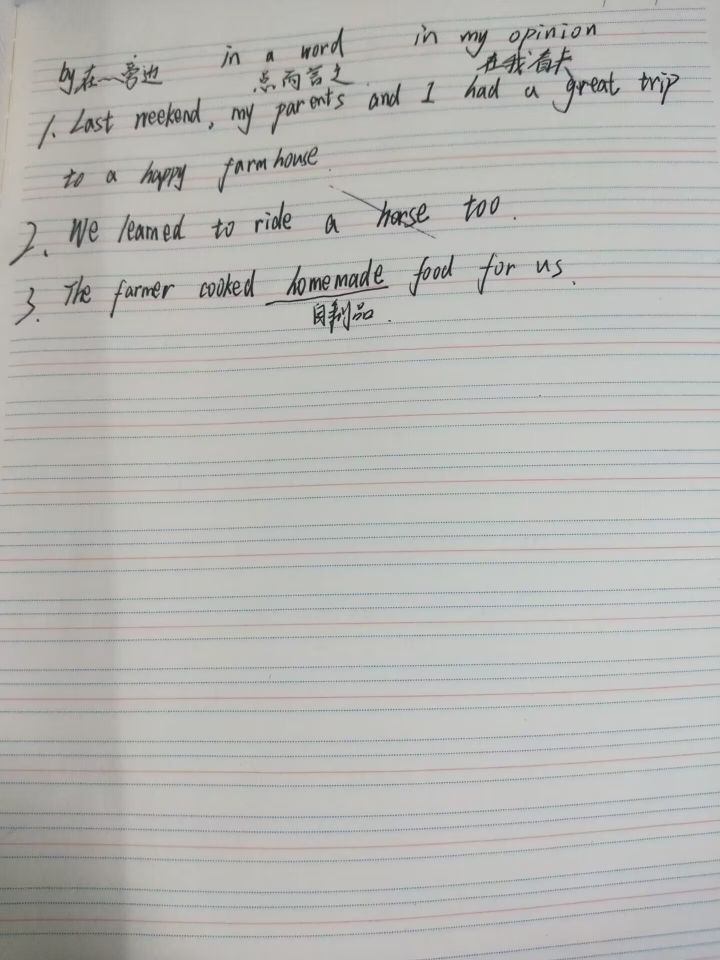 by在~旁边 in a word in my opinion
总而言之 在我看来
1. Last weekend, my parents and I had a great trip
to a happy farmhouse
2. We learned to ride a horse too.
3. The farmer cooked homemade food for us.
自制品.